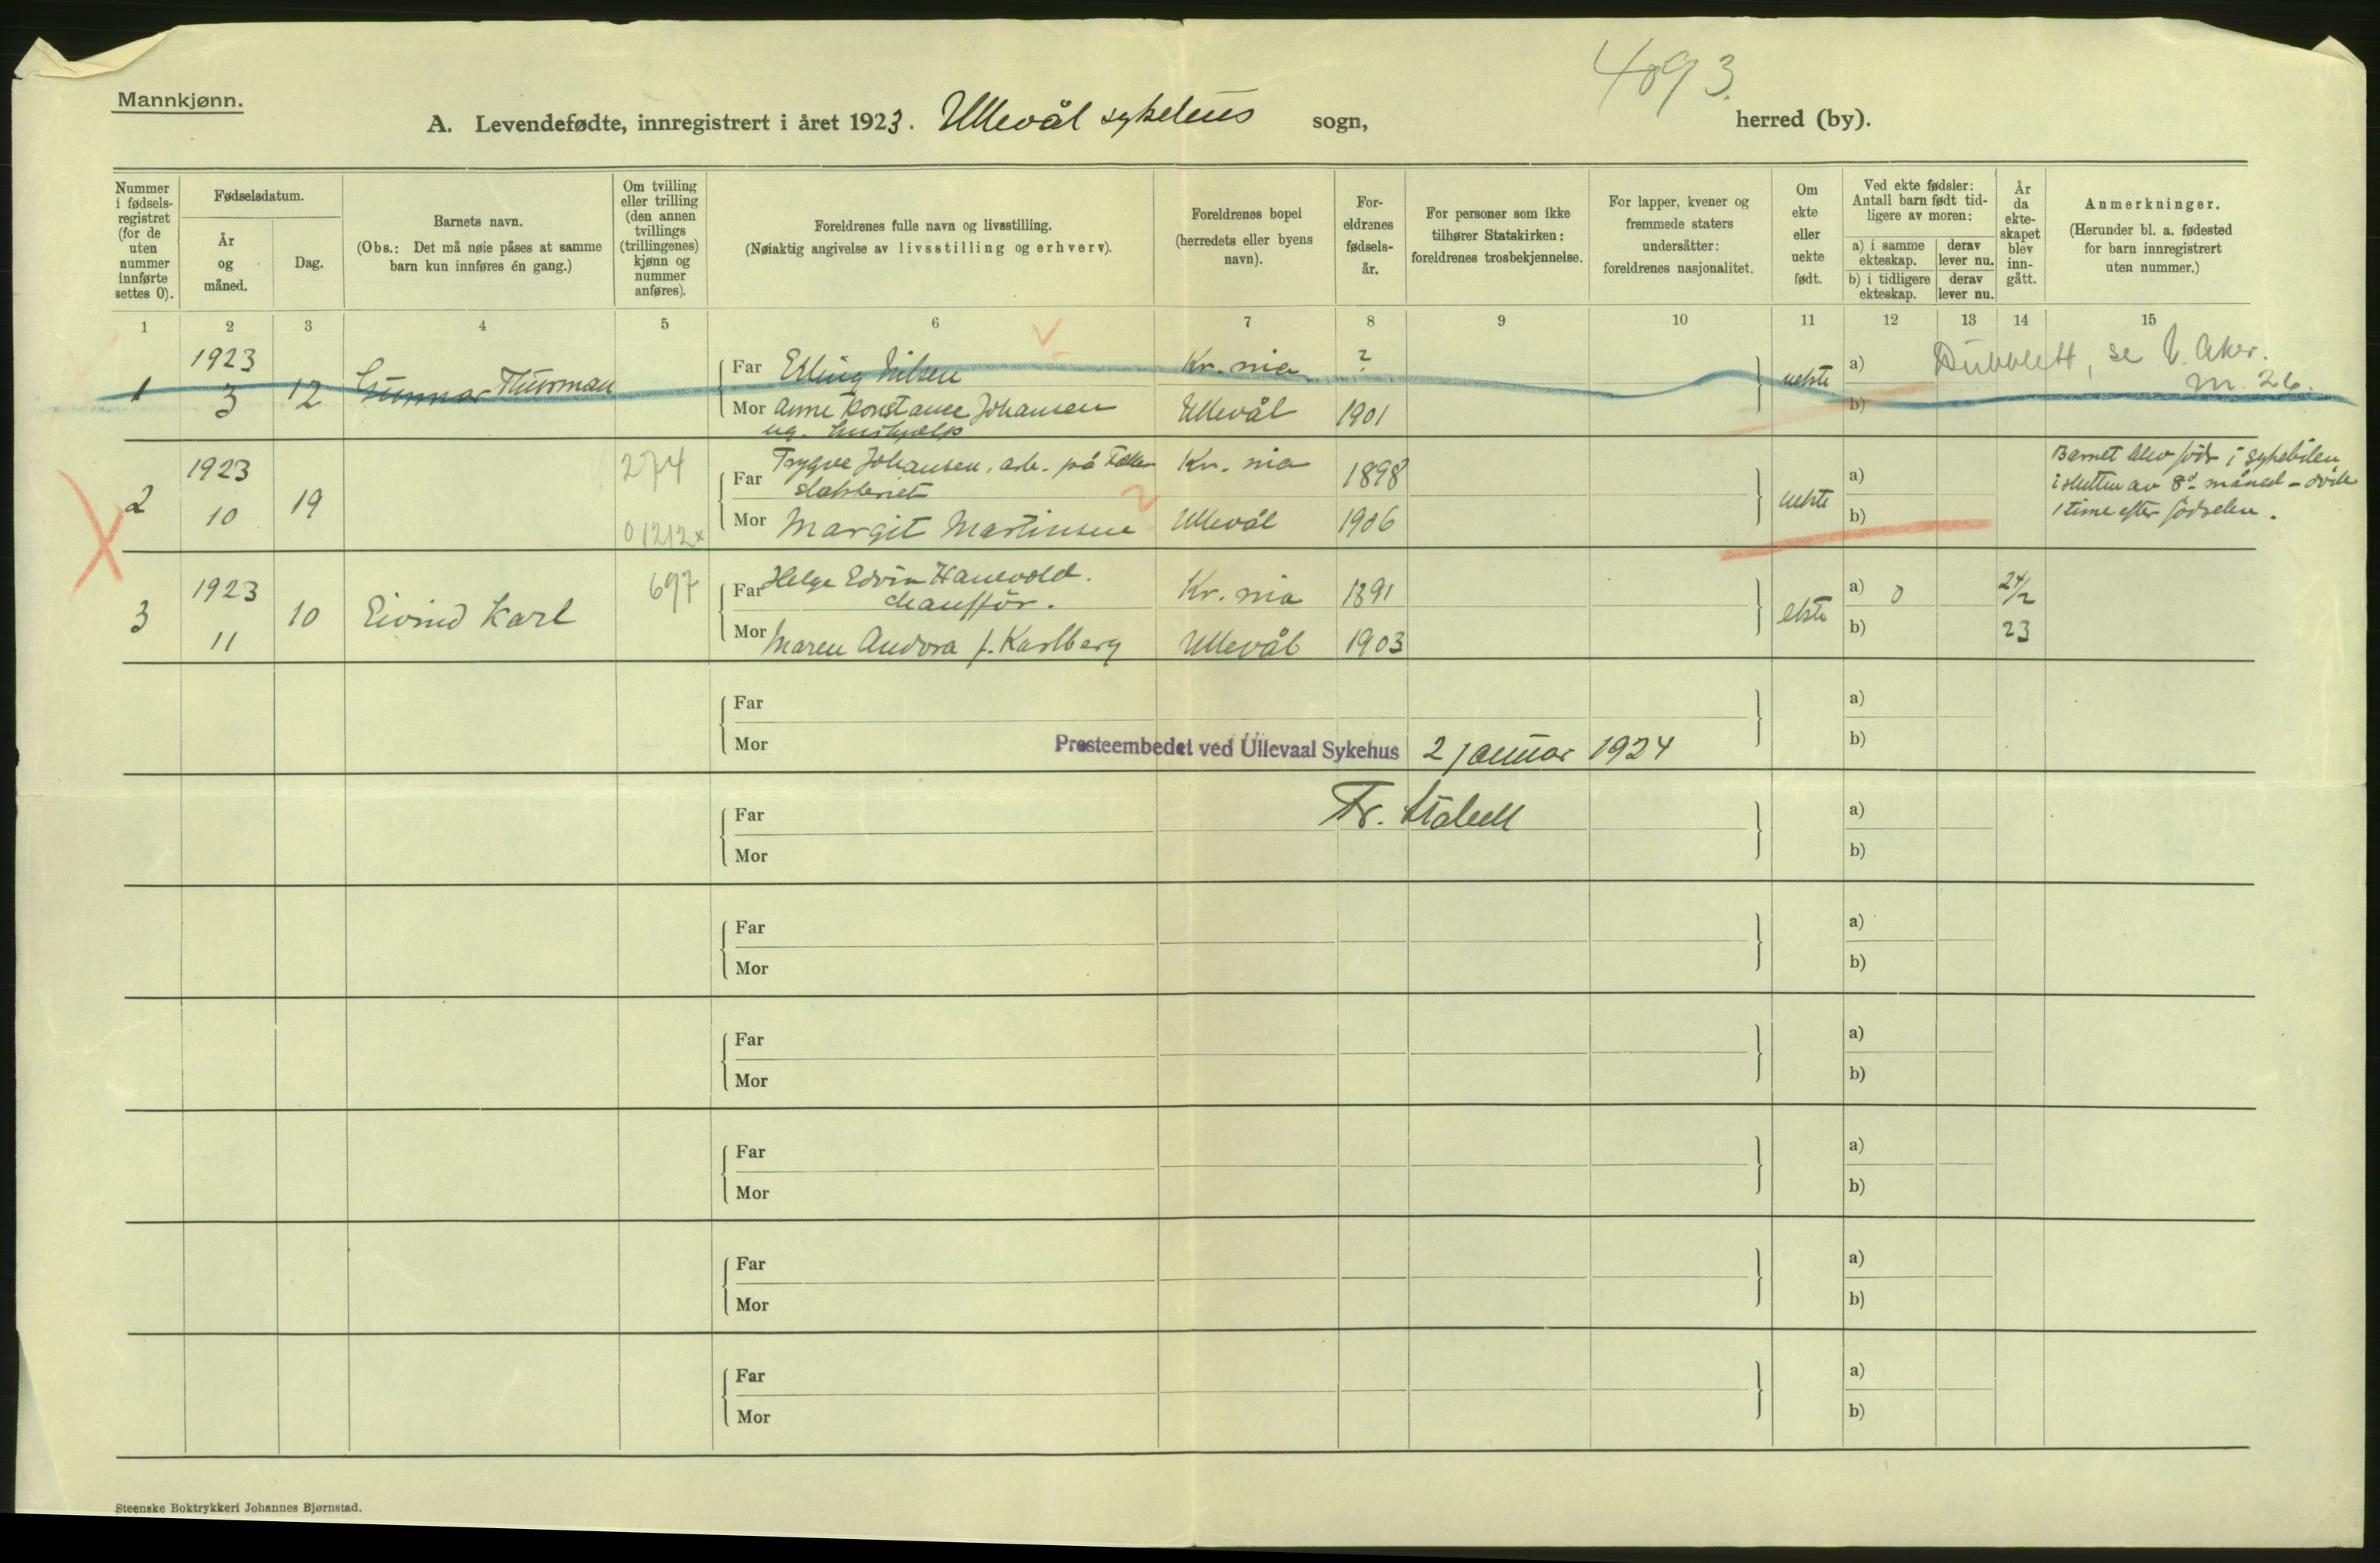 4093.
Mannkjønn.
A. Levendefødte, innregistrert i året 1923. Ullevål sykehus sogn, herred (by).
Nummer i fødsels-registret (for de uten nummer innførte settes 0).
Fødselsdatum.
År og måned.
Dag.
Barnets navn.
(Obs.: Det må nøie påses at samme barn kun innføres én gang.)
Om tvilling eller trilling (den annen tvillings (trillingenes) kjønn og nummer anføres).
Foreldrenes fulle navn og livsstilling.
(Nøiaktig angivelse av livsstilling og erhverv).
Foreldrenes bopel (herredets eller byens navn).
For-eldrenes fødsels-år.
For personer som ikke tilhører Statskirken: foreldrenes trosbekjennelse.
For lapper, kvener og fremmede staters undersåtter: foreldrenes nasjonalitet.
Om ekte eller uekte født.
Ved ekte fødsler: Antall barn født tid-ligere av moren:
a) i samme ekteskap. derav lever nu.
b) i tidligere ekteskap. derav lever nu.
År da ekte-skapet blev inn-gått.
Anmerkninger.
(Herunder bl. a. fødested for barn innregistrert uten nummer.)
1 2 3 4 5 6 7 8 9 10 11 12 13 14 15
1 1923 3 12 Gunnar Thorman
Far Erling Nilsen Kr.nia ? uekte a) Dubblett, se V. Aker.
m. 26.
Mor Anne Konstance Johansen Ullevål 1901 b)
ug. hushjelp
2 1923 10 19 274
Far Trygve Johansen, arb. på Kr.nia 1898 uekte a)
01212x
Mor Margit Martinsen Ullevål 1906 b)
Barnet blev født i sykebilen
i slutten av 8d måned - døde
1 time efter fødselen.
3 1923 11 10 Eivind Karl 697
Far Helge Edvin Hanevold. Kr.nia 1891 ekte a) 0 24/2
chauffør.
Mor Maren Andora f. Karlberg Ullevål 1903 b) 23
Far a)
Mor b)
Presteembedet ved Ullevaal Sykehus 2 januar 1924
Fr. Stabell
Far a)
Mor b)
Far a)
Mor b)
Far a)
Mor b)
Far a)
Mor b)
Far a)
Mor b)
Far a)
Mor b)
Steenske Boktrykkeri Johannes Bjørnstad.